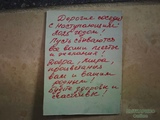 Дорогие соседи!
С наступающим
Новым годом!
Пусть сбываются
все ваши мечты
и желания!
Добра, мира,
процветания
вам и вашим
родным!
Будьте здоровы и
счастливы!